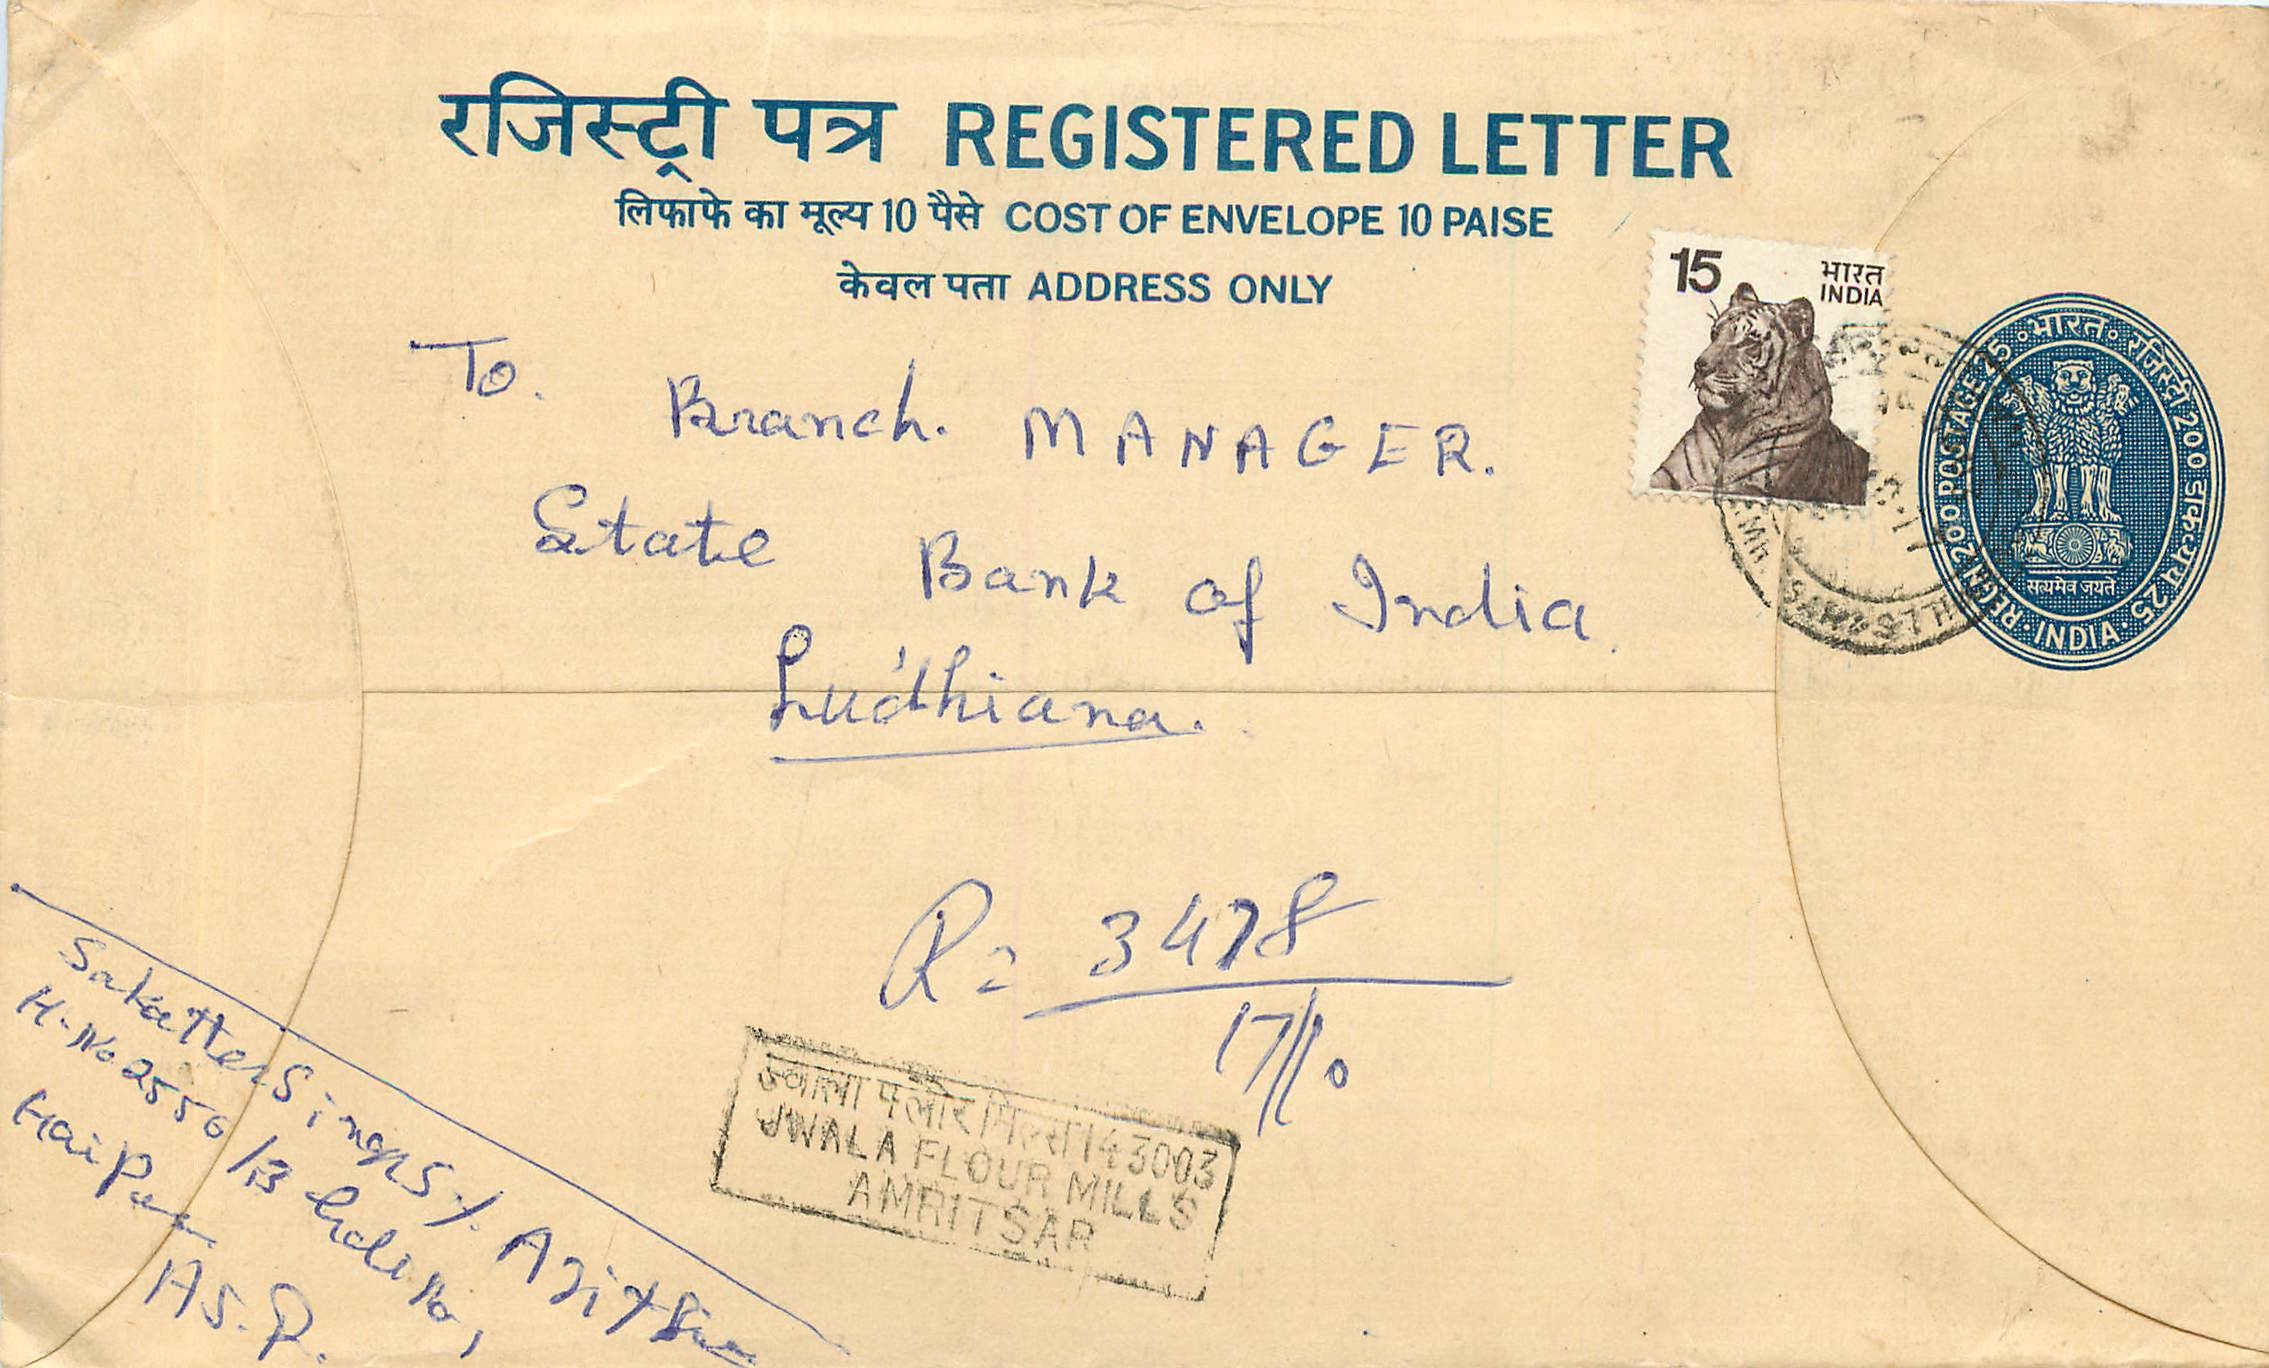 रजिस्ट्री पत्र REGISTERED LETTER
लिफाफे का मूल्य 10 पैसे COST OF ENVELOPE 10 PAISE
केवल पता ADDRESS ONLY
15 भारत
INDIA
भारत रजिस्ट्री 200 डाकव्यय 25
REGN 200 POSTAGE 25
INDIA
सत्यमेव जयते
To.
Branch. MANAGER.
State Bank of India
Ludhiana.
R= 3478
17/10
ज्वाला फ्लोर मिल्स 143003
JWALA FLOUR MILLS
AMRITSAR
H.No 2550/13
AS.R.